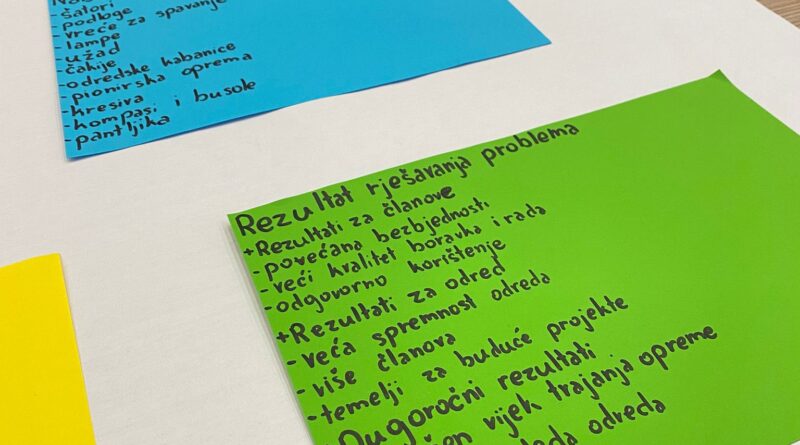 - šatori
- podloge
- vreće za spavanje
- lampe
- užad
- čakije
- odredske kabanice
- pionirska oprema
- kresiva
- kompasi i busole
- pantljika
Rezultat rješavanja problema
+Rezultati za članove
- povećana bezbjednosti
- veći kvalitet boravka i rada
- odgovorno korištenje
+Rezultati za odred
- veća spremnost odreda
- više članova
- temelji za buduće projekte
Dugoročni rezultati
vijek trajanja opreme
odreda